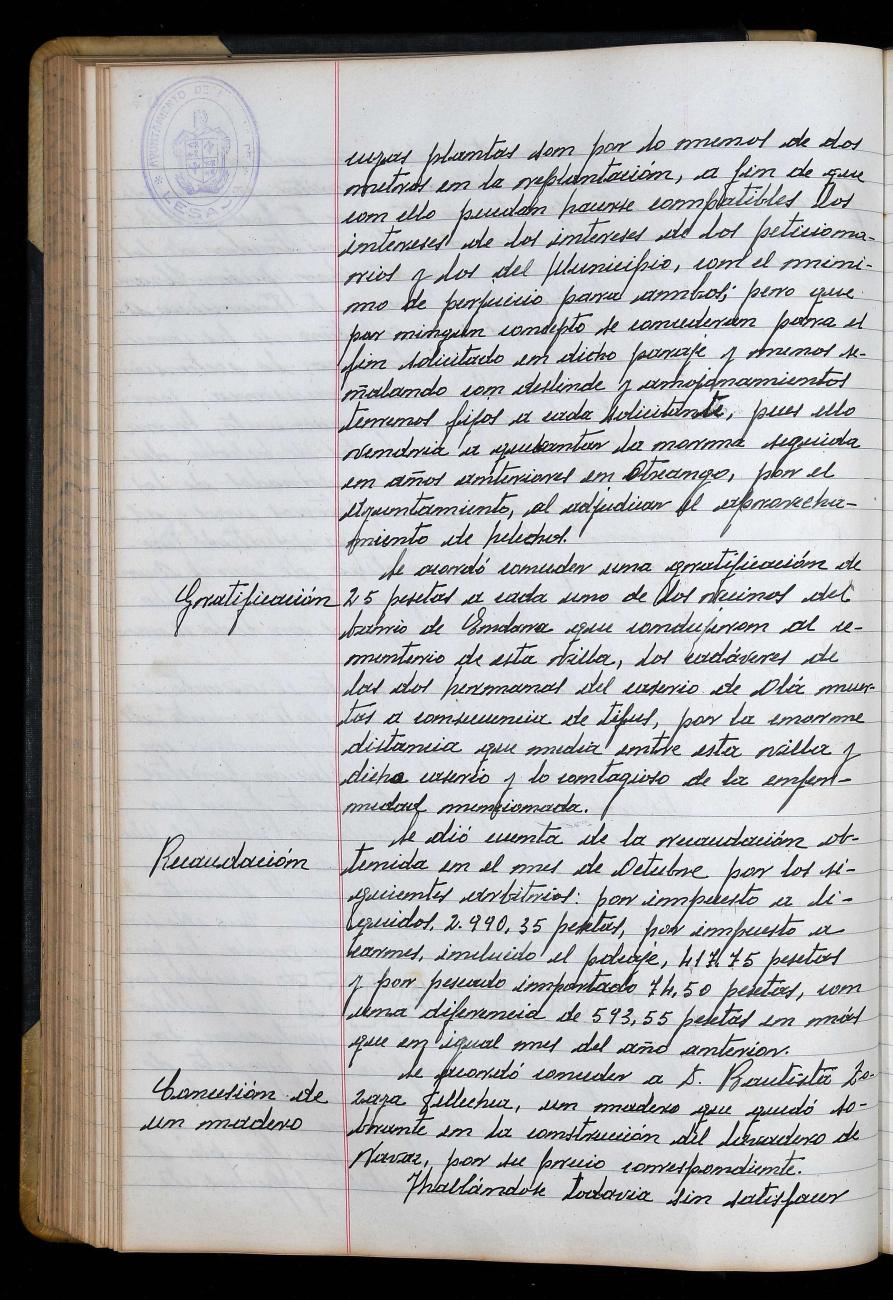 AYUNTAMIENTO DE
LESACA
cuyas plantas son por lo menos de dos
metros en la replantación, a fin de que
con ello puedan hacerse compatibles los
intereses de los intereses de los peticiona-
rios y los del Municipio, con el míni-
mo de perjuicio para ambos; pero que
por ningun concepto se concederan para el
fin solicitado en dicho paraje y menos se-
ñalando con deslinde y amojonamientos
terrenos fijos a cada solicitante, pues ello
vendria a quebrantar la norma seguida
en años anteriores en Otsango, por el
Ayuntamiento, al adjudicar el aprovecha-
miento de helechos.
Se acordó conceder una gratificación de
Gratificación 25 pesetas a cada uno de los vecinos del
barrio de Endara que condujeron al ce-
menterio de esta villa, los cadáveres de
las dos hermanas del caserio de Olá muer-
tas a consecuencia de tifus, por la enorme
distancia que media entre esta villa y
dicho caserio y lo contagioso de la enfer-
medad mencionada.
Se dió cuenta de la recaudación ob-
Recaudación tenida en el mes de Octubre por los si-
guientes arbitrios: por impuesto a li-
quidos, 2.990,35 pesetas, por impuesto a
carnes, incluido el poleaje, 417,75 pesetas
y por pescado importado 74,50 pesetas, con
una diferencia de 593,55 pesetas en más
que en igual mes del año anterior.
Se acordó conceder a D. Bautista Zo-
Concesión de zaya Tellechea, un madero que quedó so-
un madero brante en la construcción del lavadero de
Navaz, por su precio correspondiente.
Hallándose todavia sin satisfacer